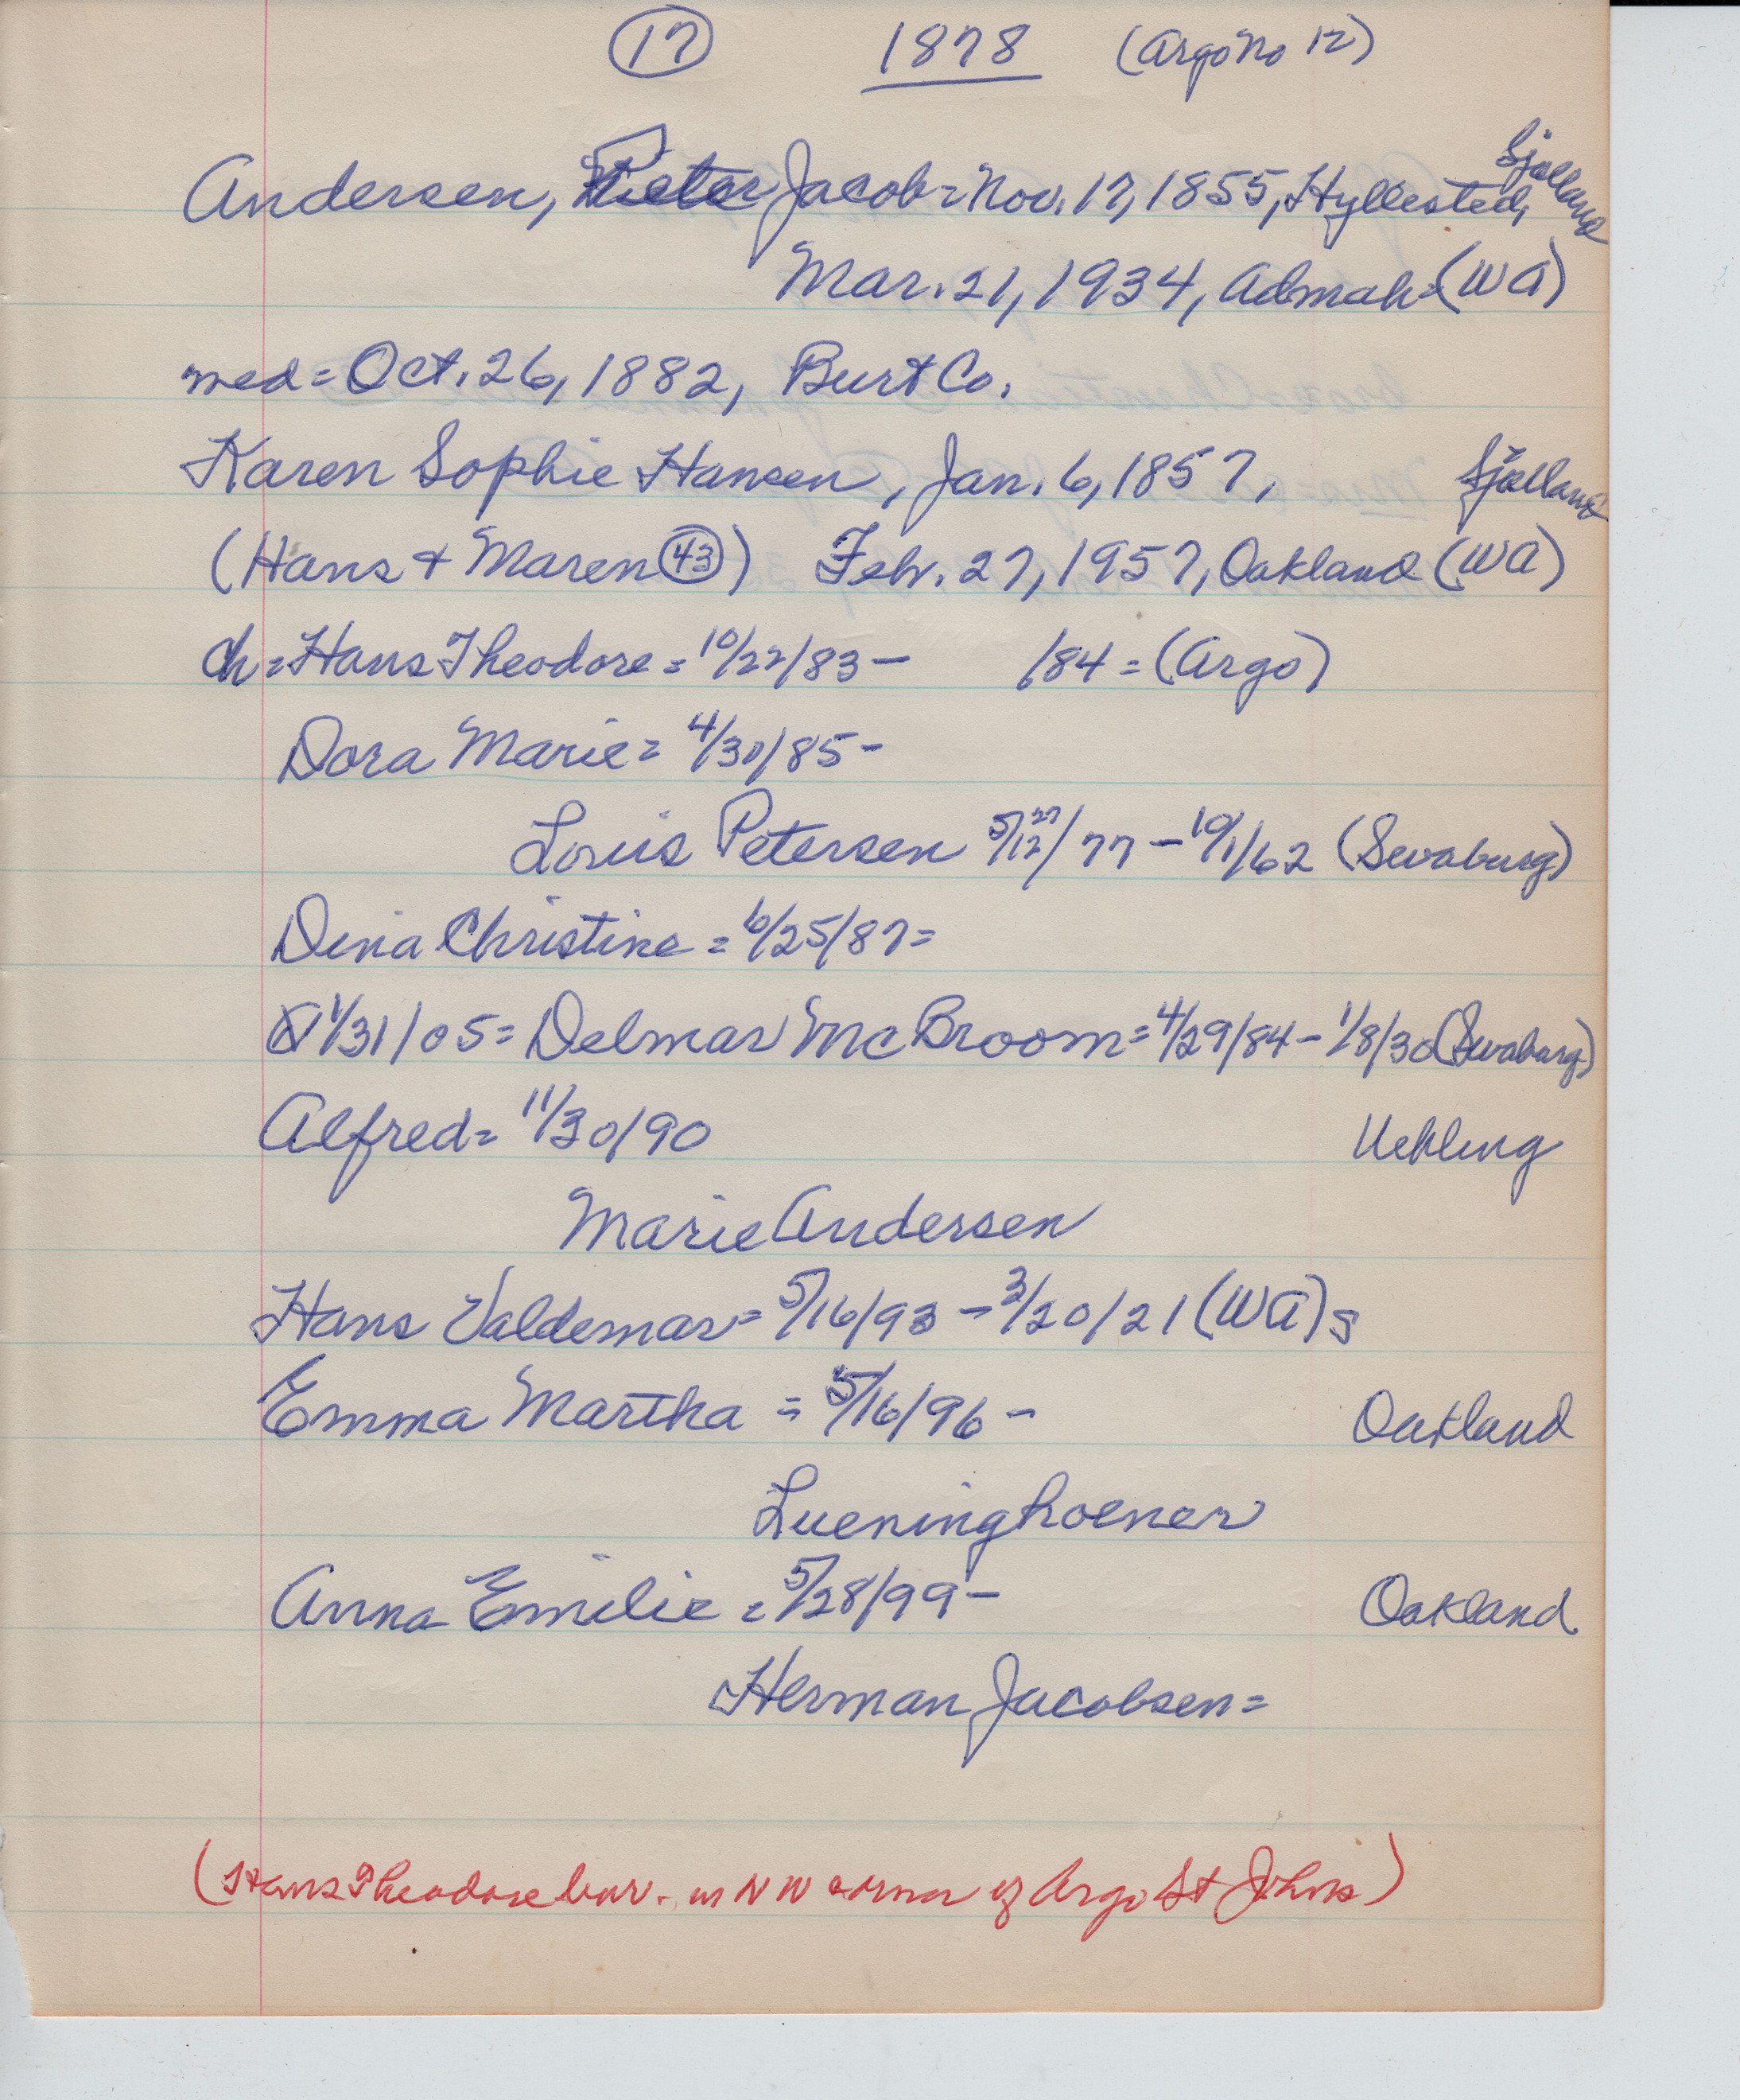 (17) 1878 (Argo No 12)
Andersen, Pieter Jacob = Nov. 17, 1855, Hyllested, Sjælland
Mar. 21, 1934, Admah = (WA)
med = Oct. 26, 1882, Burt Co.
Karen Sophie Hansen, Jan. 6, 1857, Sjælland
(Hans + Maren (43)) Feb. 27, 1957, Oakland (WA)
ch = Hans Theodore = 10/22/83 - /84 = (Argo)
Dora Marie = 4/30/85 -
Louis Petersen 5/12/77 - 10/1/62 (Swaburg)
27
Dina Christine = 6/25/87 =
1/31/05 = Delmar McBroom = 4/29/84 - 1/8/30 (Swaburg)
Alfred = 11/30/90 Uehling
Marie Andersen
Hans Valdemar = 5/16/93 - 3/20/21 (WA) s
Emma Martha = 5/16/96 - Oakland
Lueninghoener
Anna Emilie = 5/28/99 - Oakland
Herman Jacobsen =
(Hans Theodore bur. in NW corner of Argo St Johns)